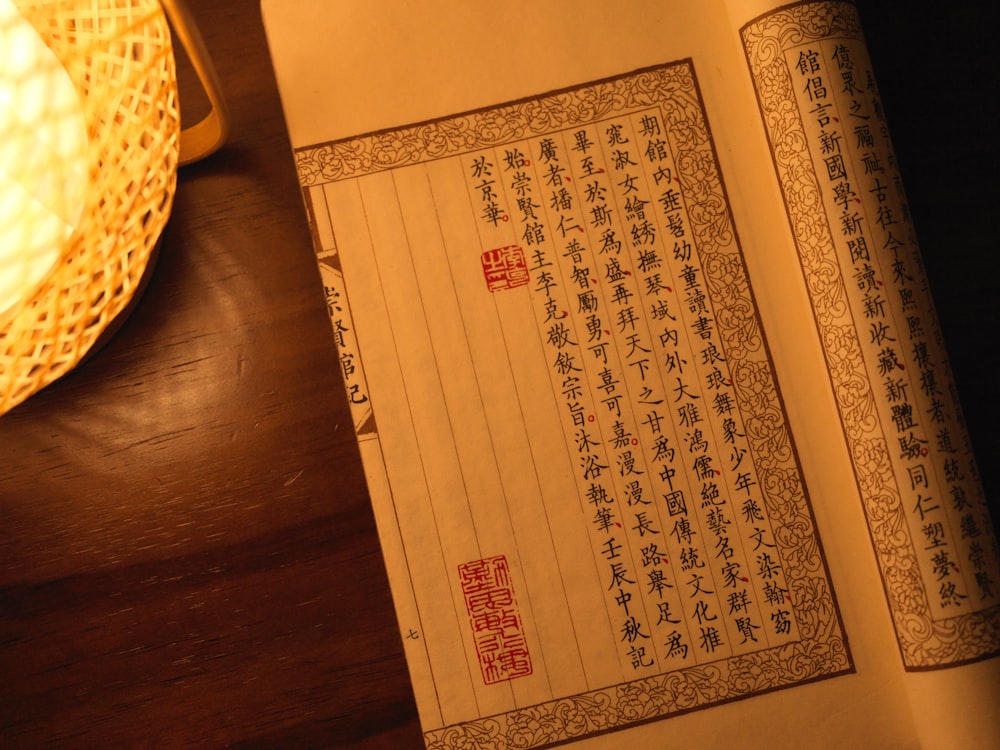 億眾之福祉、古往今來、熙熙攘攘者、道統敦繼、崇賢
館倡言、新國學、新閱讀、新收藏、新體驗。同仁塑夢、終
期館內、垂髫幼童、讀書琅琅、舞象少年、飛文染翰、窈
窕淑女、繪綉撫琴、域內外大雅鴻儒、絕藝名家、群賢
畢至、於斯爲盛。再拜天下之甘爲中國傳統文化推
廣者、播仁、普智、勵勇、可喜可嘉。漫漫長路、舉足爲
始。崇賢館主李克敬敘宗旨。沐浴執筆、壬辰中秋記
於京華。
崇賢館記
七